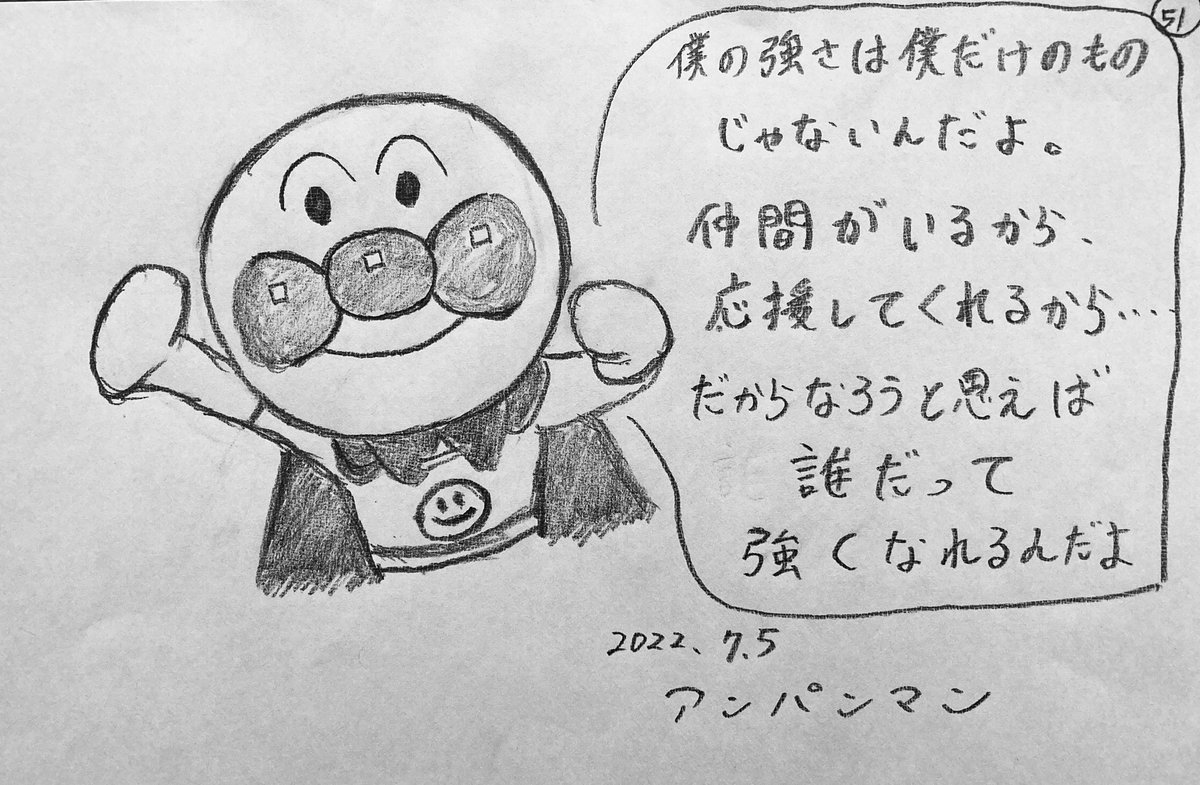 51
僕の強さは僕だけのもの
じゃないんだよ。
仲間がいるから、
応援してくれるから…
だからなろうと思えば
誰だって
強くなれるんだよ
2022.7.5
アンパンマン